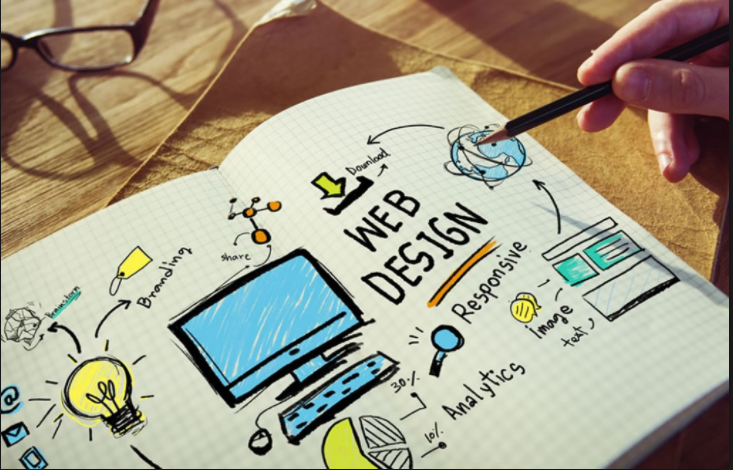 Download
WEB
DESIGN
share
Branding
Brainstorm
Responsive
image
text
30%
Analytics
10%
@